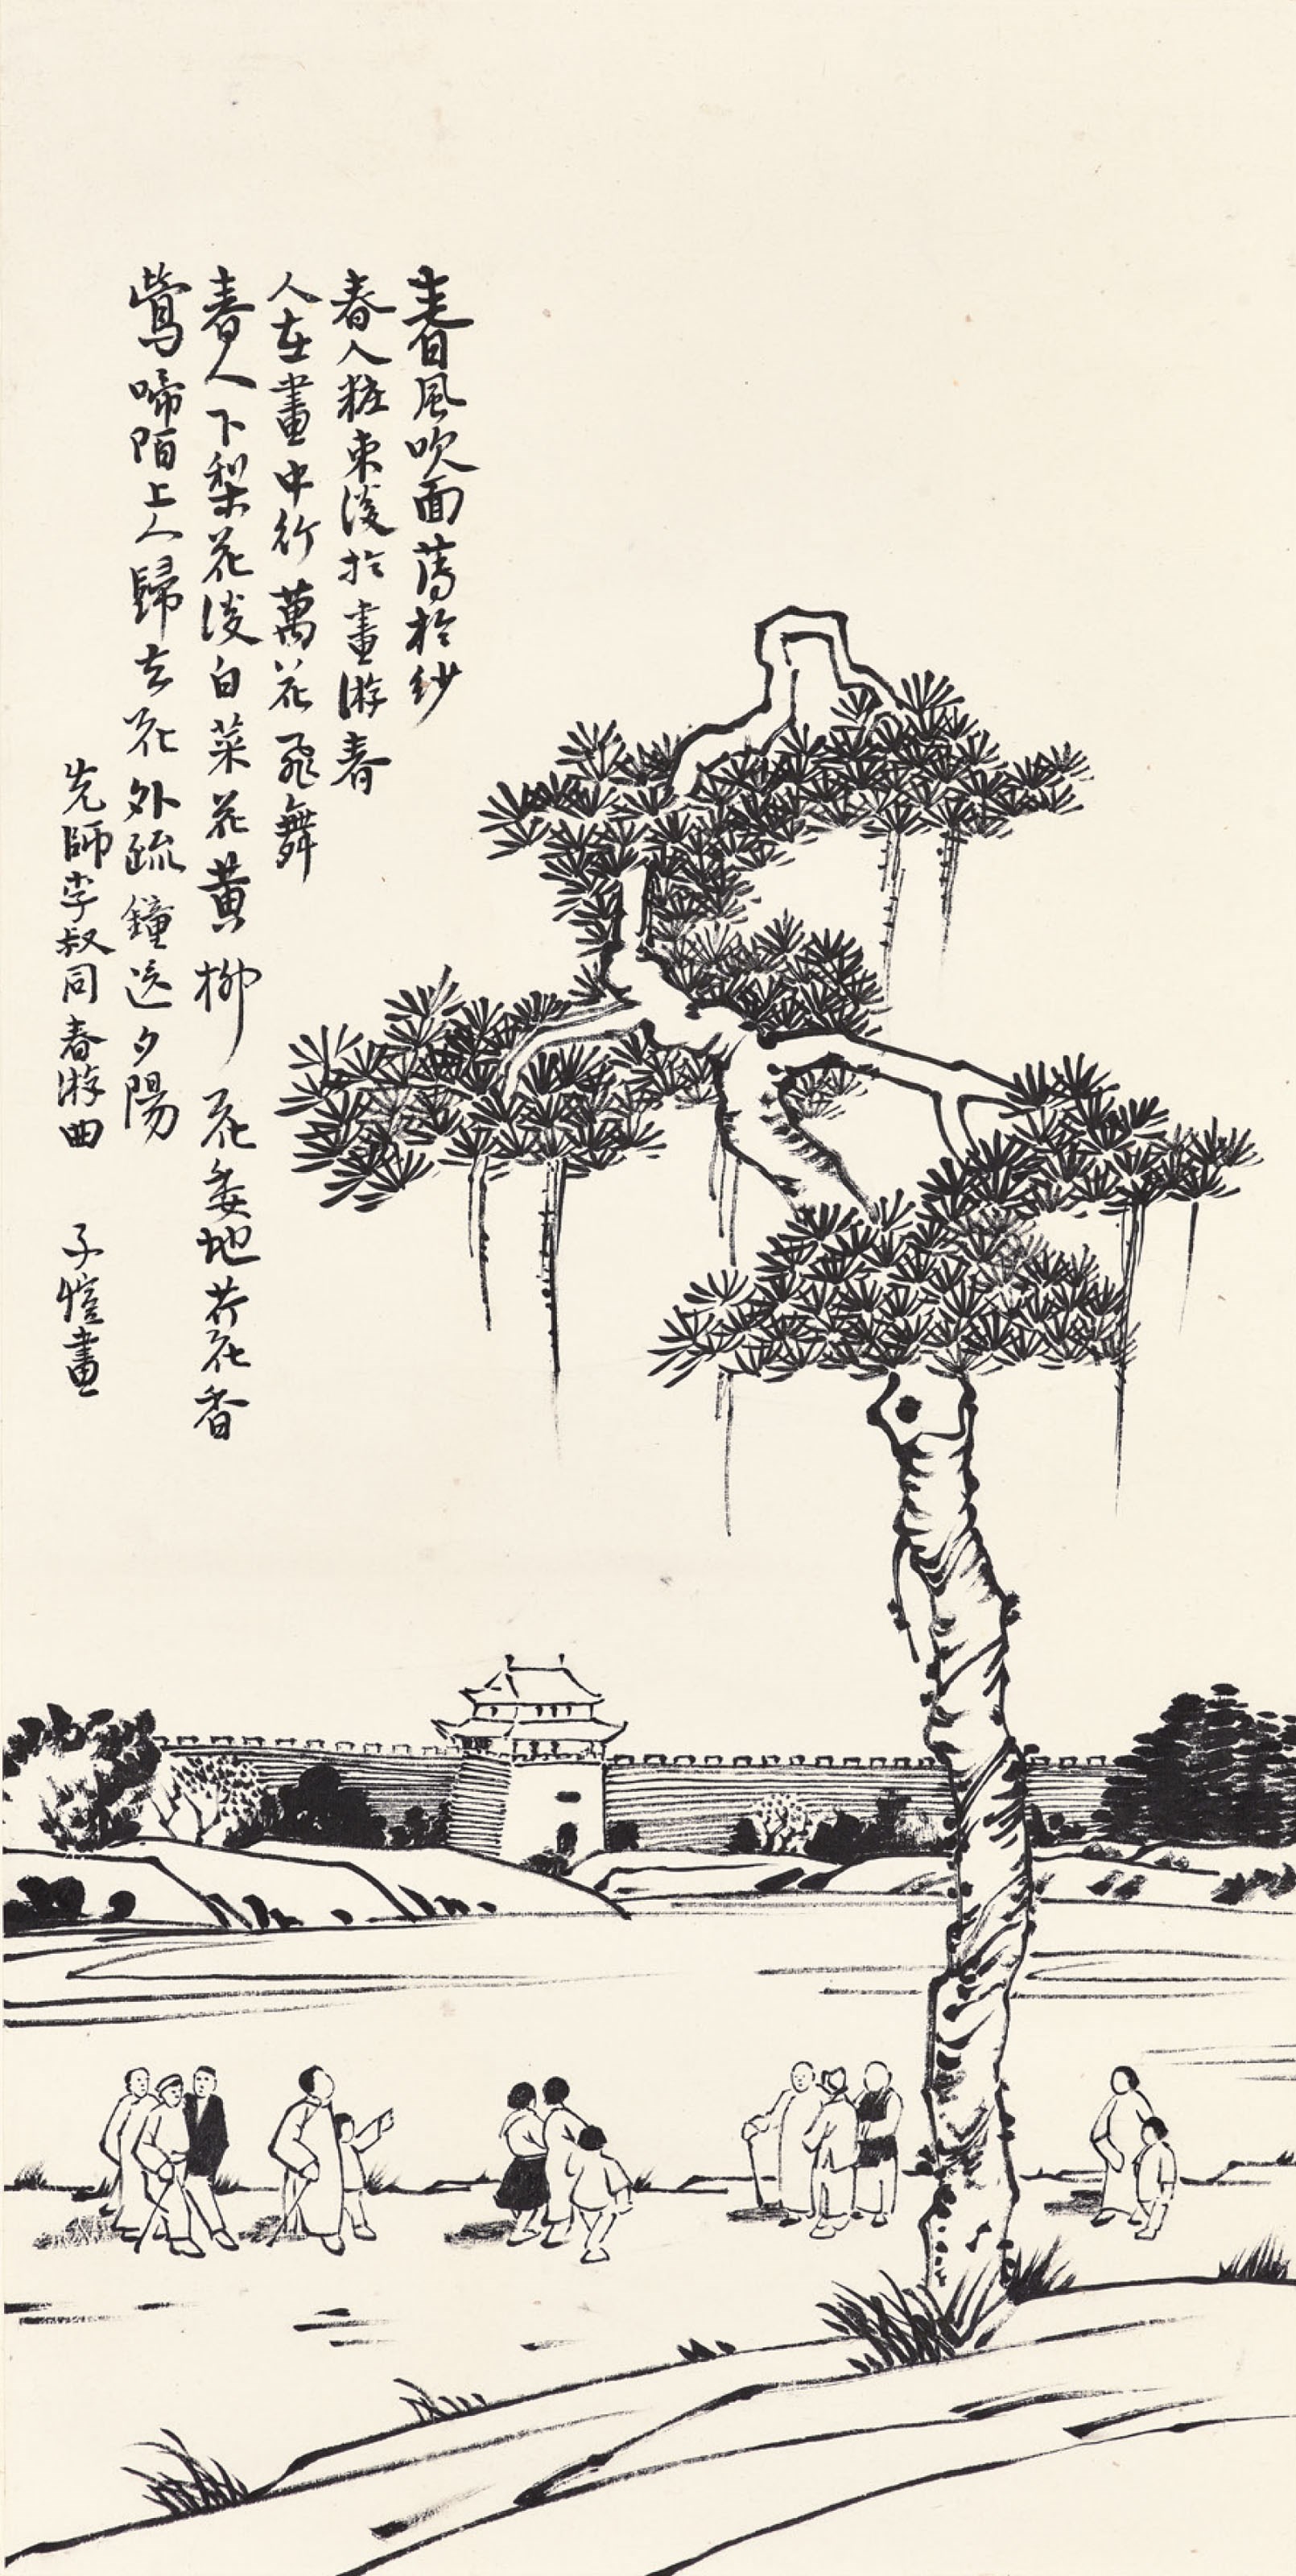 春風吹面薄於紗
春人粧束淡於畫游春
人在畫中行萬花飛舞
春人下梨花淡白菜花黄柳花委地芥花香
鶯啼陌上人歸去花外疏鐘送夕陽
先師李叔同春游曲 子愷畫